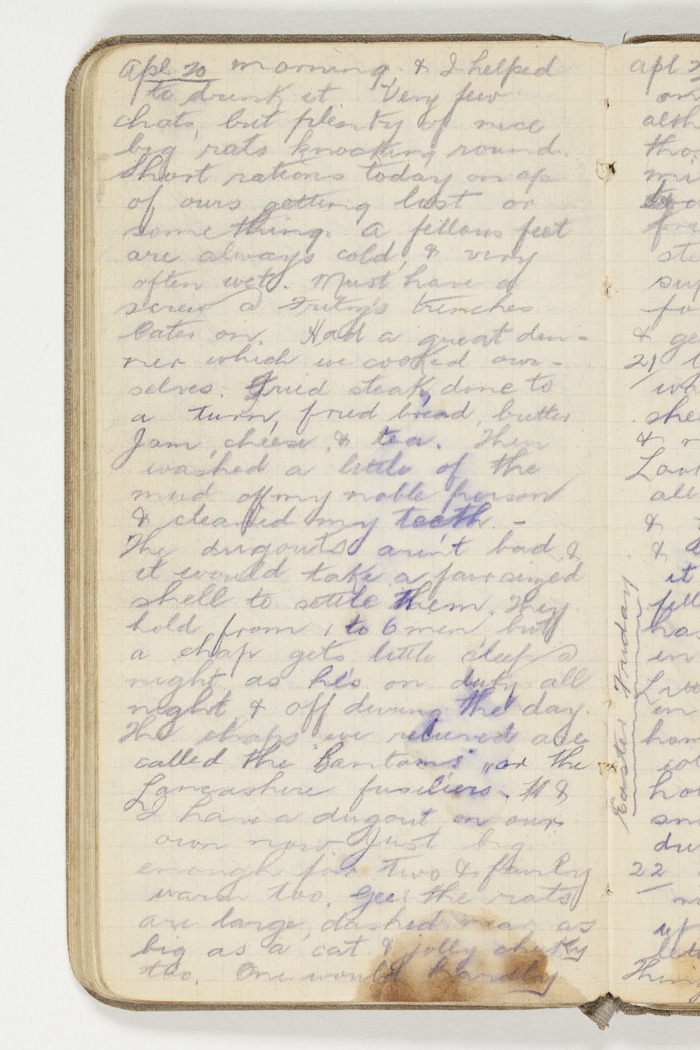 Apl 20 morning. & I helped
to drink it Very few
chats, but plenty of nice
big rats knocking round.
Short rations today on a/c
of ours getting lost or
something. A fellows feet
are always cold, & very
often wet. Must have a
screw a Fritzy's trenches
later on. Had a great din-
ner which we cooked our-
selves. Fried steak, done to
a turn, fried bread, butter
Jam, cheese, & tea. Then
washed a little of the
mud off my noble person
& cleaned my teeth. -
The dugouts ain't bad, &
it would take a fair sized
shell to settle them. They
hold from 1 to 6 men but
a chap gets little sleep a
night as he's on duty all
night & off during the day.
The chaps we relieved are
called the "Bantams", or the
Lancashire fusiliers. H &
I have a dugout on our
own now Just big
enough for two & fairly
warm too. Gee the rats
are large, dashed near as
big as a cat & jolly cheeky
too. One would hardly
Easter Friday
Apl 2
on
alth
tho
mu
fri
ste
sup
fo
& ge
21
wa
she
& r
all
&
&
it
fell
ha
in
in
hom
ho
du
22
Thing